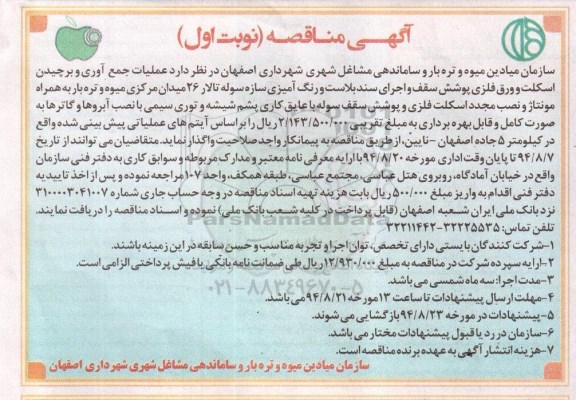 آگهـی مناقصه (نوبت اول)
سازمان میادین میوه و تره بار و ساماندهی مشاغل شهری شهرداری اصفهان در نظر دارد عملیات جمع آوری و برچیدن
اسکلت و ورق فلزی پوشش سقف و اجرای سندبلاست و رنگ آمیزی سازه سوله تالار ۲۶ میدان مرکزی میوه و تره بار به همراه
مونتاژ و نصب مجدد اسکلت فلزی و پوشش سقف سوله با عایق کاری پشم شیشه و توری سیمی با نصب آبروها و گاترها به
صورت کامل و قابل بهره برداری به مبلغ تقریبی ۲/۱۴۳/۵۰۰/۰۰۰ ریال را بر اساس آیتم های عملیاتی پیش بینی شده واقع
در کیلومتر ۵ جاده اصفهان -نایین، از طریق مناقصه به پیمانکار واجد صلاحیت واگذار نماید. متقاضیان می توانند از تاریخ
۹۴/۸/۷ تا پایان وقت اداری مورخه ۹۴/۸/۲۰ با ارایه معرفی نامه معتبر و مدارک مربوطه و سوابق کاری به دفتر فنی سازمان
واقع در خیابان آمادگاه، روبروی هتل عباسی، مجتمع عباسی، طبقه همکف، واحد ۱۰۷ مراجعه نموده و پس از اخذ تاییدیه
دفتر فنی اقدام به واریز مبلغ ۵۰۰/۰۰۰ ریال بابت هزینه تهیه اسناد مناقصه در وجه حساب جاری شماره ۳۱۰۰۰۰۳۰۴۱۰۰۷
نزد بانک ملی ایران شعبه اصفهان (قابل پرداخت در کلیه شعب بانک ملی) نموده و اسناد مناقصه را دریافت نمایند.
تلفن تماس: ۳۲۲۲۵۵۳۵-۳۲۲۱۱۴۴۳
۱-شرکت کنندگان بایستی دارای تخصص، توان اجرا و تجربه مناسب و حسن سابقه در این زمینه باشند.
۲-ارایه سپرده شرکت در مناقصه به مبلغ ۱۲/۹۳۰/۰۰۰ ریال طی ضمانت نامه بانکی یا فیش پرداختی الزامی است.
۳-مدت اجرا: سه ماه شمسی می باشد.
۴-مهلت ارسال پیشنهادات تا ساعت ۱۳ مورخه ۹۴/۸/۲۱ می باشد.
۵-پیشنهادات در مورخه ۹۴/۸/۲۳ بازگشایی می شوند.
۶-سازمان در رد یا قبول پیشنهادات مختار می باشد.
۷-هزینه انتشار آگهی به عهده برنده مناقصه است.
سازمان میادین میوه و تره بار و ساماندهی مشاغل شهری شهرداری اصفهان
ParsNamadData
۰۲۱-۸۸۳۴۹۶۷۰-۵